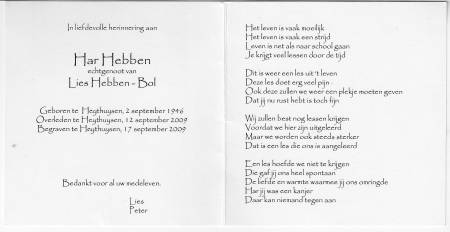 In liefdevolle herinnering aan
Har Hebben
echtgenoot van
Lies Hebben - Bol
Geboren te Heythuysen, 2 september 1946
Overleden te Heythuysen, 12 september 2009
Begraven te Heythuysen, 17 september 2009
Bedankt voor al uw medeleven.
Lies
Peter
Het leven is vaak moeilijk
Het leven is vaak een strijd
Leven is net als naar school gaan
Je krijgt veel lessen door de tijd
Dit is weer een les uit 't leven
Deze les doet erg veel pijn
Ook deze zullen we weer een plekje moeten geven
Dat jij nu rust hebt is toch fijn
Wij zullen best nog lessen krijgen
Voordat we hier zijn uitgeleerd
Maar we worden ook steeds sterker
Dat is een les die ons is aangeleerd
Een les hoefde we niet te krijgen
Die gaf jij ons heel spontaan
De liefde en warmte waarmee jij ons omringde
Har jij was een kanjer
Daar kan niemand tegen aan